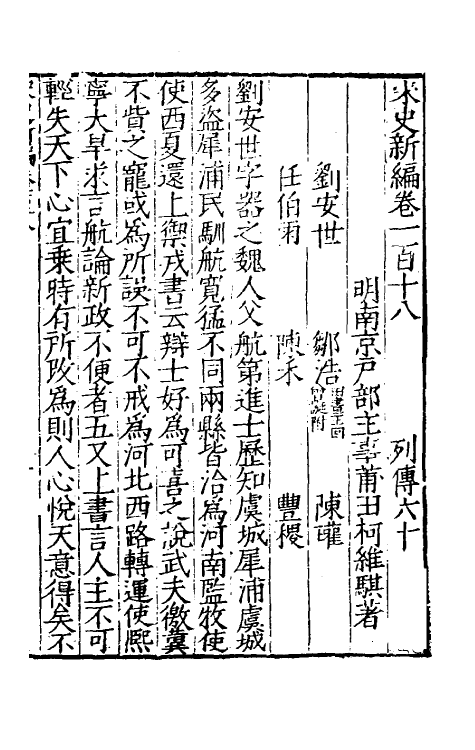 宋史新編卷一百十八　列傳六十
明南京戶部主事莆田柯維騏著
劉安世　鄒浩田晝王回曾誕附　陳瓘
任伯雨　陳禾　豐稷
劉安世字器之魏人父航第進士歷知虞城犀浦虞城
多盜犀浦民馴航寬猛不同兩縣皆治爲河南監牧使
使西夏還上禦戎書云辯士好爲可喜之說武夫徼冀
不貲之寵或爲所誤不可不戒爲河北西路轉運使熙
寧大旱求言航論新政不便者五又上書言人主不可
輕失天下心宜乗時有所改爲則人心悅天意得矣不